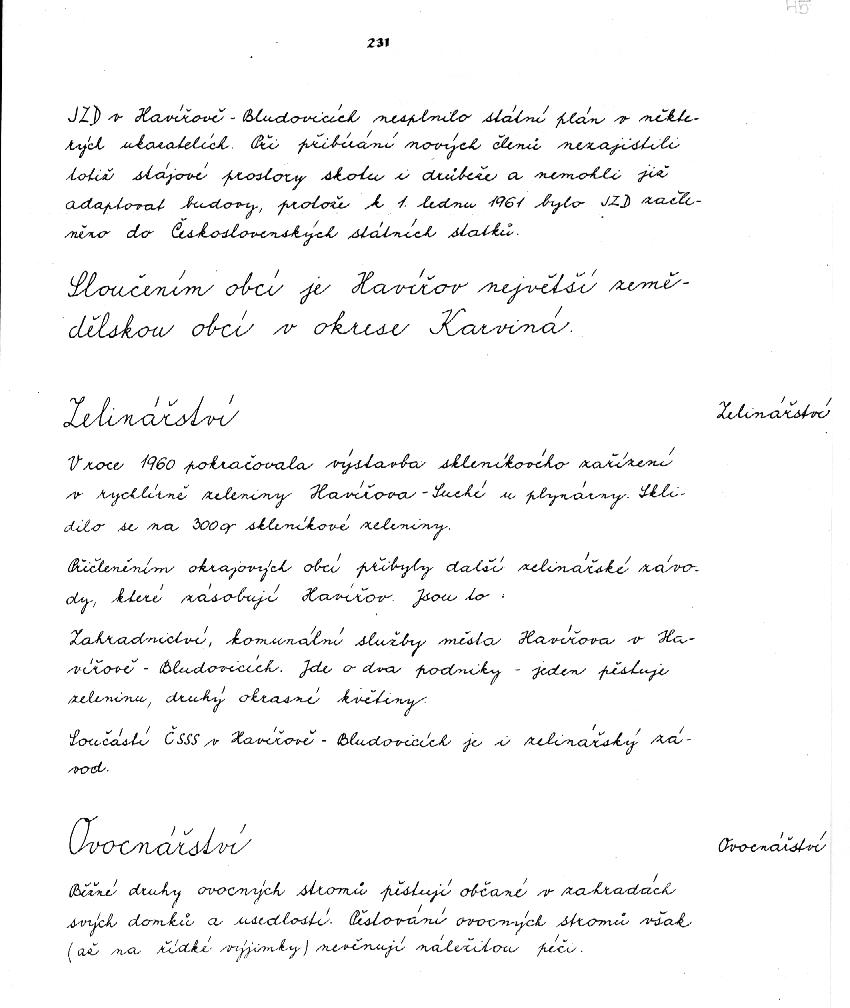 231
JZD v Havířově - Bludovicích nesplnilo státní plán v někte-
rých ukazatelích. Při přibírání nových členů nezajistili
totiž stájové prostory skotu i drůbeže a nemohli již
adaptovat budovy, protože k 1. lednu 1961 bylo JZD začle-
něno do Československých státních statků.
Sloučením obcí je Havířov největší země-
dělskou obcí v okrese Karviná.
Zelinářství
Zelinářství
V roce 1960 pokračovala výstavba skleníkového zařízení
v rychlírně zeleniny Havířova - Suché u plynárny. Skli-
dilo se na 300 q skleníkové zeleniny.
Přičleněním okrajových obcí přibyly další zelinářské závo-
dy, které zásobují Havířov. Jsou to :
Zahradnictví, komunální služby města Havířova v Ha-
vířově - Bludovicích. Jde o dva podniky - jeden pěstuje
zeleninu, druhý okrasné květiny.
Součástí ČSSS v Havířově - Bludovicích je i zelinářský zá-
vod.
Ovocnářství
Ovocnářství
Běžné druhy ovocných stromů pěstují občané v zahradách
svých domků a usedlostí. Pěstování ovocných stromů však
(až na řídké vyjímky) nevěnují náležitou péči.